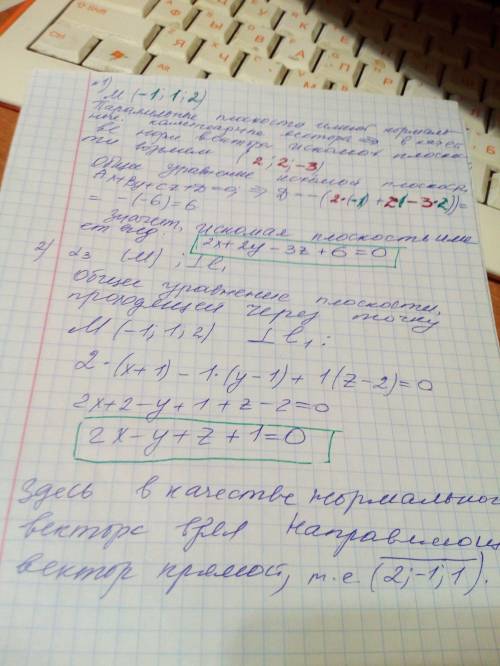 1)
M (-1; 1; 2)
Параллельные плоскости имеют нормаль-
ные коллинеарные вектора => в качест
ве норм вектора искомой плоскос
ти возьмем (2; 2; -3)
Общее уравнение искомой плоскос
Ax+By+Cz+D=0, => D=-(2·(-1)+2·1-3·2))=
= -(-6)=6
значит, искомая плоскость име
ет вид 2x+2y-3z+6=0
2) (M) ; ⊥ l₁
Общее уравнение плоскости,
проходящей через точку
M (-1, 1, 2) ⊥ l₁:
2·(x+1)-1·(y-1)+1(z-2)=0
2x+2-y+1+z-2=0
2x-y+z+1=0
Здесь в качестве нормального
вектора взял направляющ
вектор прямой, т.е. (2;-1;1).